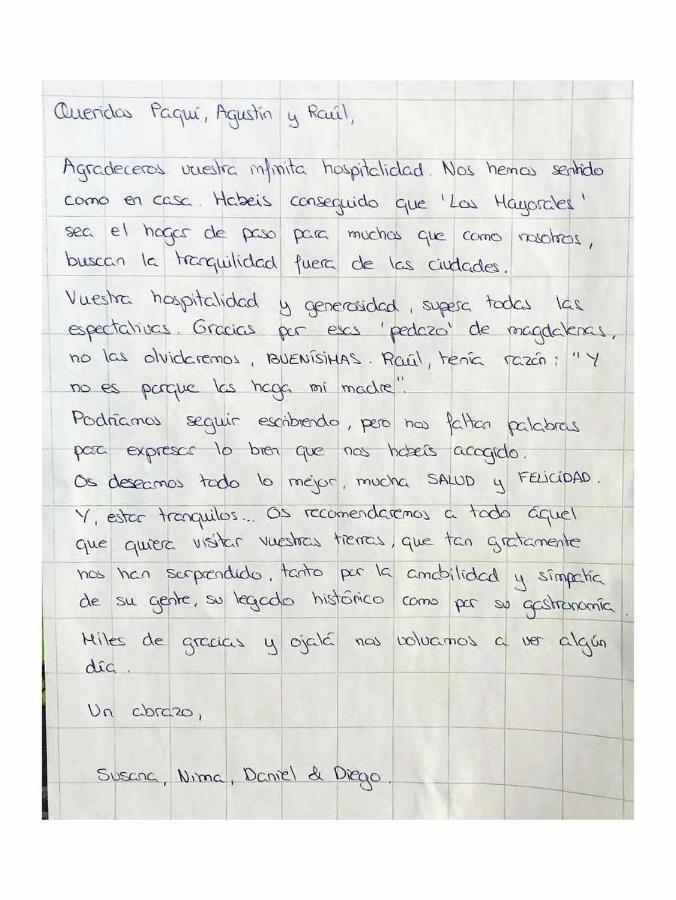 Queridos Paqui, Agustín y Raúl,
Agradeceros vuestra infinita hospitalidad. Nos hemos sentido
como en casa. Habeis conseguido que 'Los Mayorales'
sea el hogar de paso para muchos que como nosotros,
buscan la tranquilidad fuera de las ciudades.
Vuestra hospitalidad y generosidad, supera todas las
espectativas. Gracias por esas 'pedazo' de magdalenas,
no las olvidaremos, BUENÍSIMAS. Raúl, tenía razón: "Y
no es porque las haga mi madre".
Podríamos seguir escribiendo, pero nos faltan palabras
para expresar lo bien que nos habeís acogido.
Os deseamos todo lo mejor, mucha SALUD y FELICIDAD.
Y, estar tranquilos... Os recomendaremos a todo áquel
que quiera visitar vuestras tierras, que tan gratamente
nos han sorprendido, tanto por la amabilidad y simpatía
de su gente, su legado histórico como por su gastronomía.
Miles de gracias y ojalá nos volvamos a ver algún
día.
Un abrazo,
Susana, Nima, Daniel & Diego.